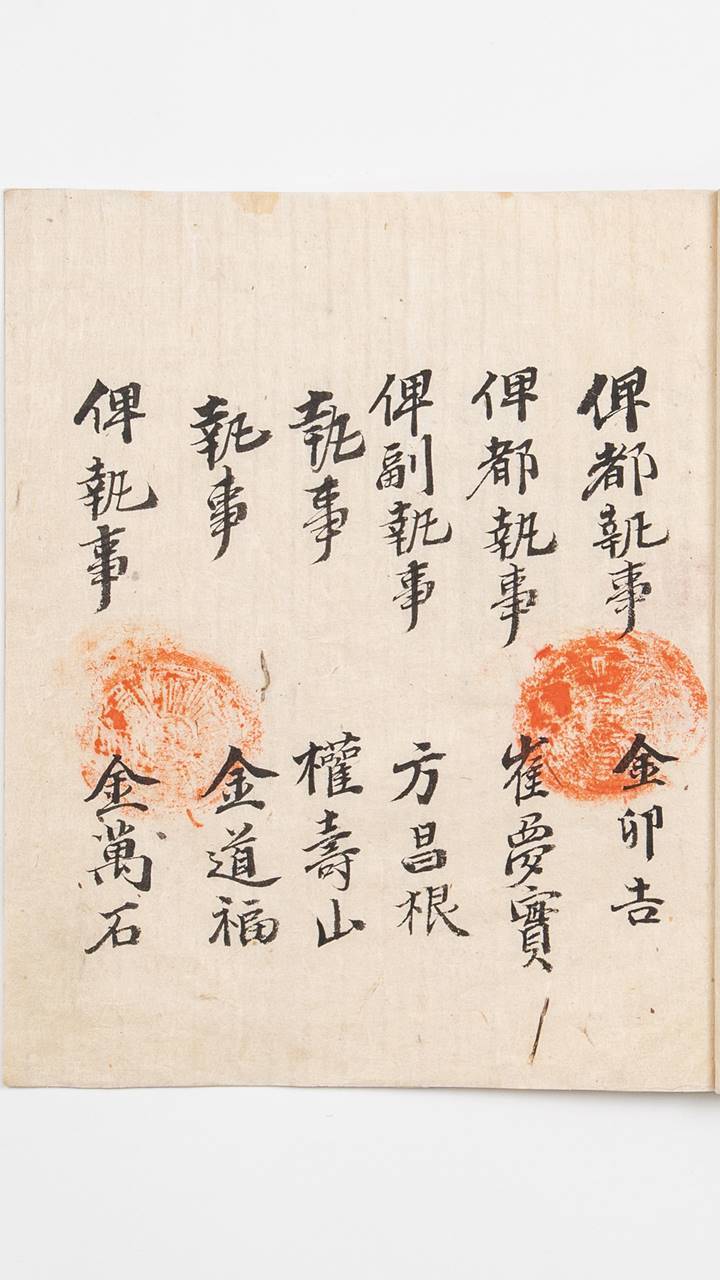 俾都執事 金卯吉
俾都執事 崔夢實
俾副執事 方昌根
執事 權壽山
執事 金道福
俾執事 金萬石